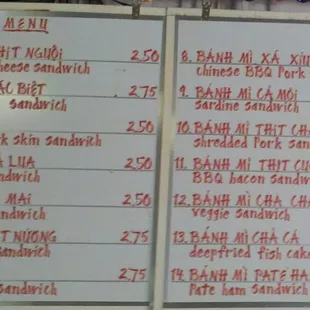 MENU
THỊT NGUỘI 2.50
cheese sandwich
ĐẶC BIỆT 2.75
sandwich
2.50
pork skin sandwich
LUA 2.50
sandwich
MAI 2.50
sandwich
THỊT NƯỚNG 2.75
sandwich
2.75
sandwich
8. BÁNH MÌ XÁ XÍU
chinese BBQ Pork
9. BÁNH MÌ CÁ MÒI
sardine sandwich
10. BÁNH MÌ THỊT CHÀ
shredded Pork san
11. BÁNH MÌ THỊT CU
BBQ bacon sandw
12. BÁNH MÌ CHA CHA
veggie sandwich
13. BÁNH MÌ CHẢ CÁ
deepfried fish cake
14. BÁNH MÌ PATE HA
Pate ham sandwich